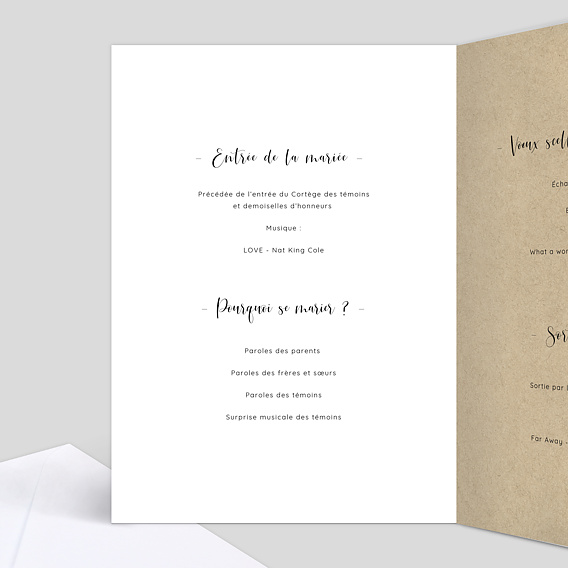 - Entrée de la mariée -
Précédée de l'entrée du Cortège des témoins
et demoiselles d'honneurs
Musique :
LOVE - Nat King Cole
- Pourquoi se marier ? -
Paroles des parents
Paroles des frères et sœurs
Paroles des témoins
Surprise musicale des témoins
- Vœux
What a
-
Sortie par
Far Away -